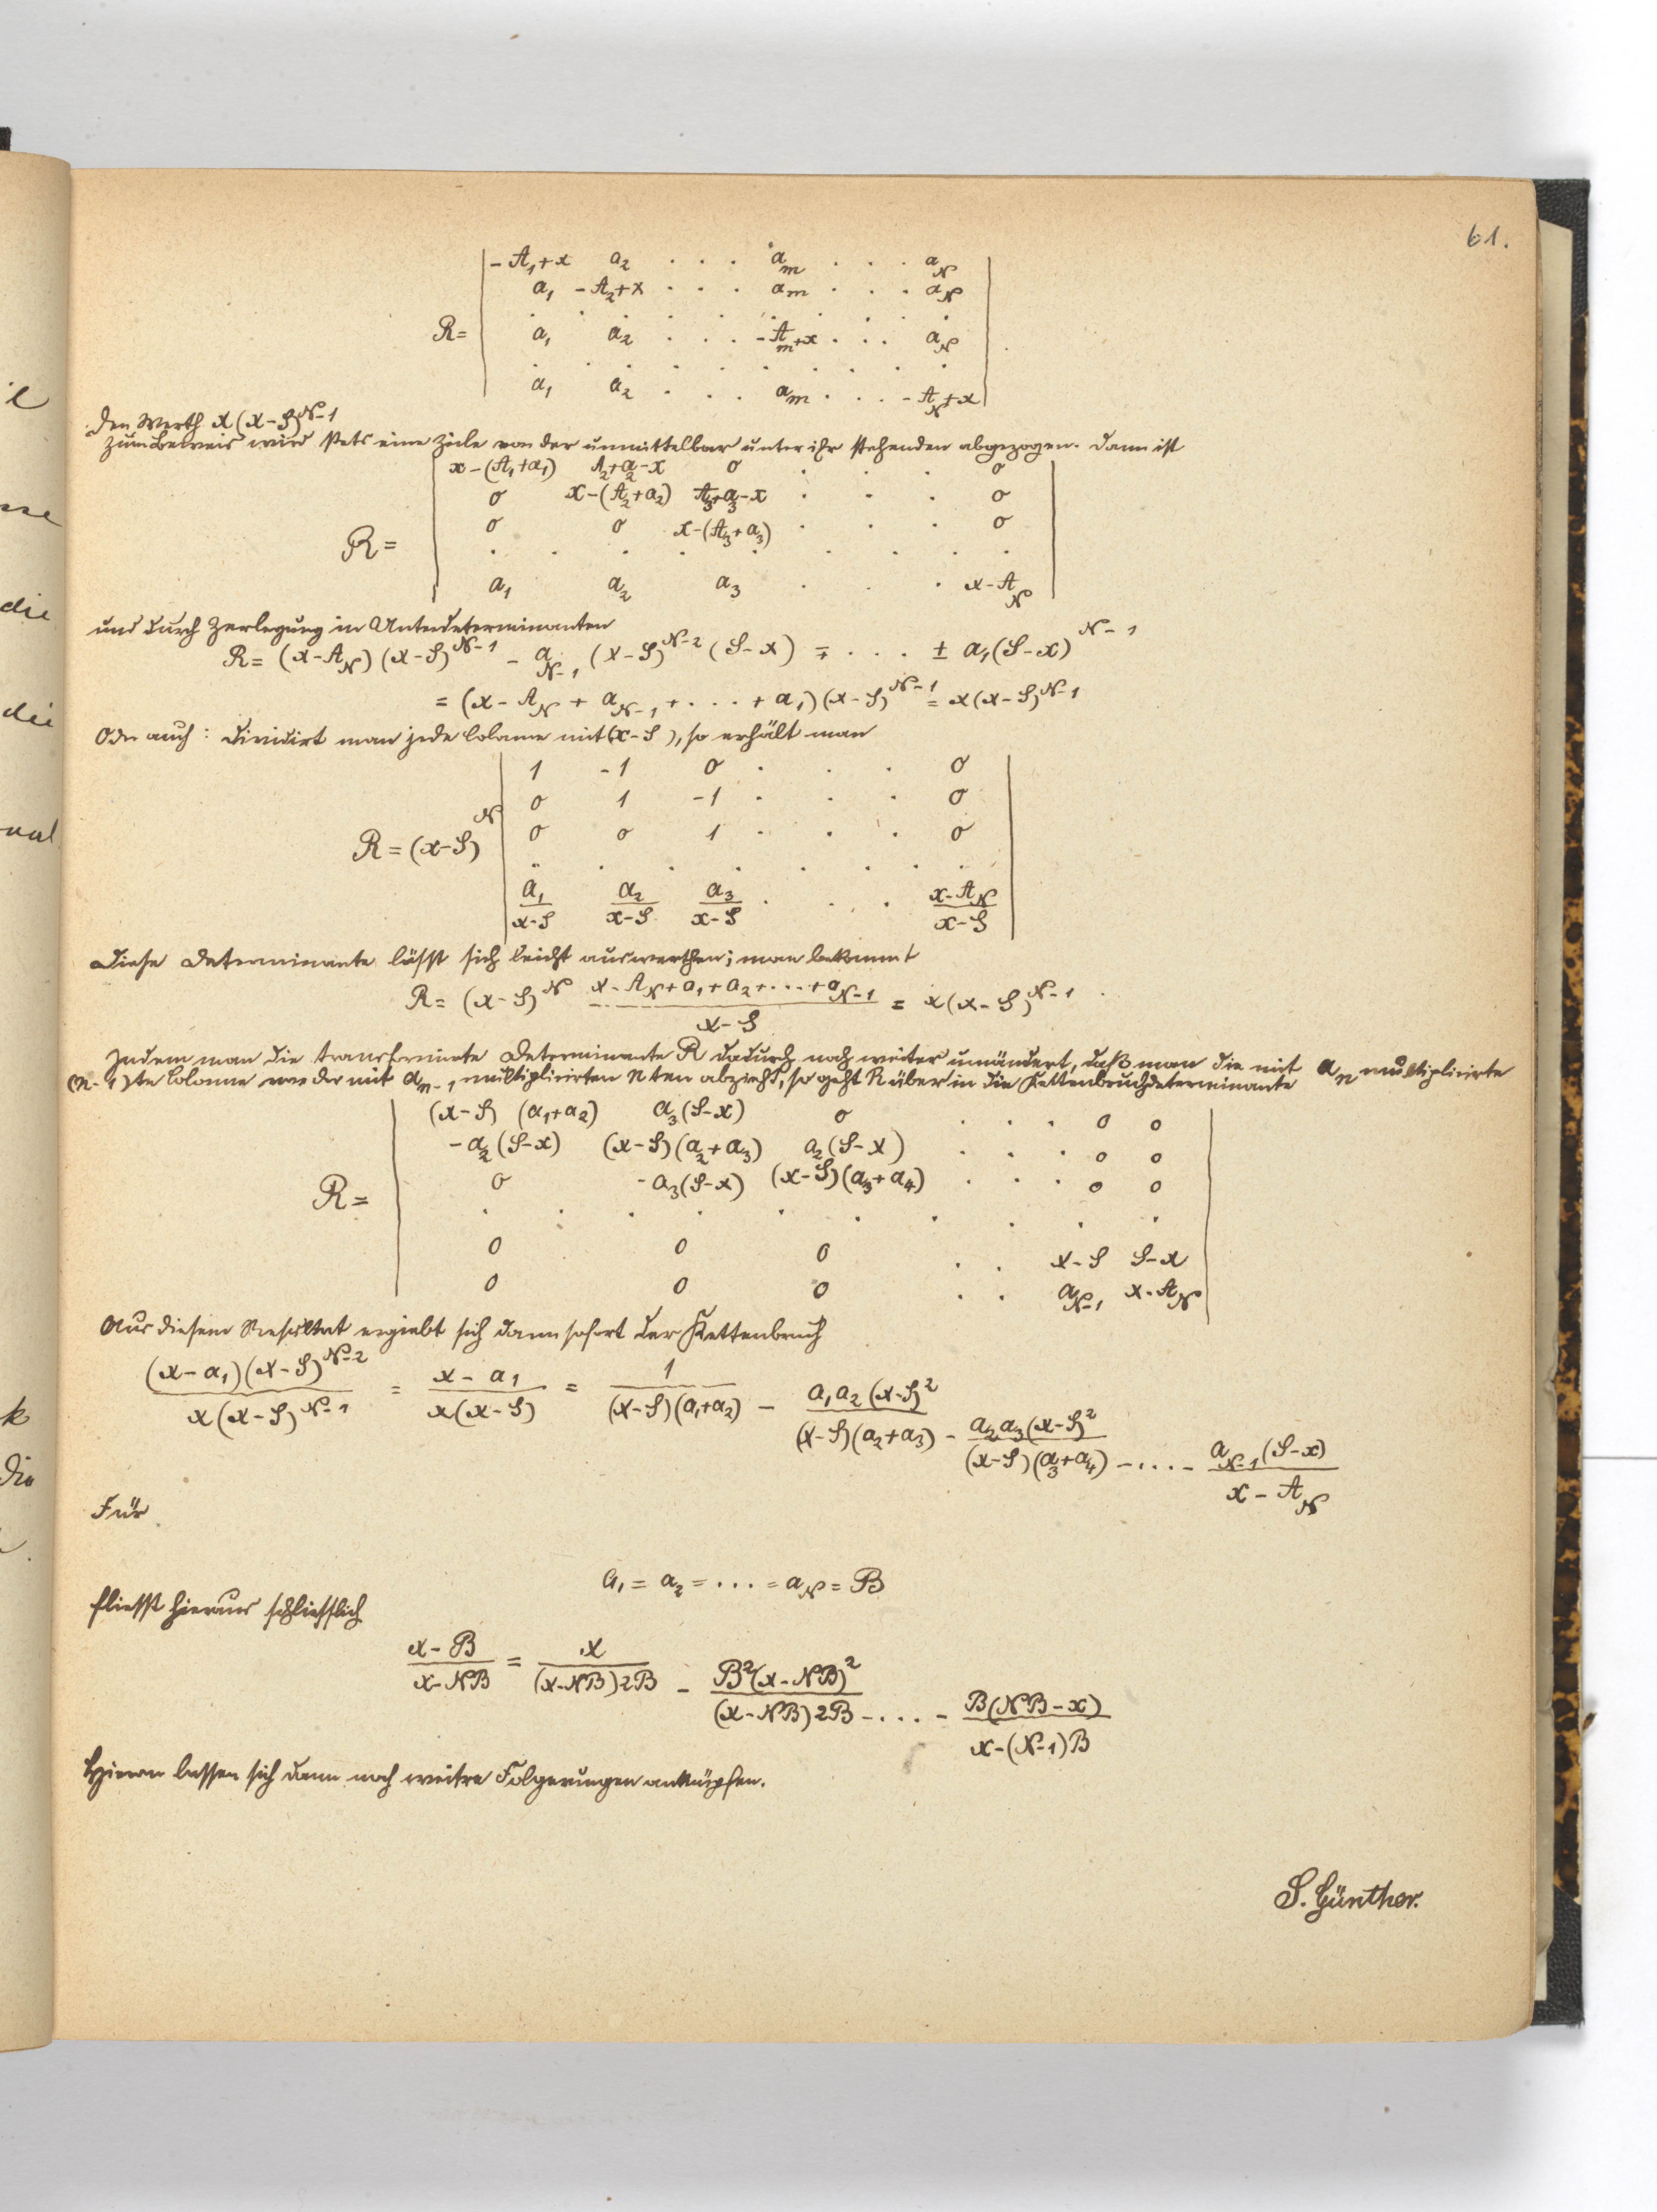 61.
-A₁+x a₂ . . . a_m . . . a_N
a₁ -A₂+x . . . a_m . . . a_N
. . . . . . . . .
R = a₁ a₂ . . . -A_m+x . . . a_N
. . . . . . . . .
a₁ a₂ . . . a_m . . . -A_N+x
den Werth x(x-S)^{N-1}
Zum Beweis wird stets eine Zeile von der unmittelbar unter ihr stehenden abgezogen. Dann ist
x-(A₁+a₁) A₂+a₂-x 0 . . . 0
0 x-(A₂+a₂) A₃+a₃-x . . . 0
0 0 x-(A₃+a₃) . . . 0
R = . . . . . . . . .
a₁ a₂ a₃ . . . x-A_N
und durch Zerlegung in Unterdeterminanten
R = (x-A_N)(x-S)^{N-1} - a_{N-1}(x-S)^{N-2}(S-x) ∓ . . . ± a₁(S-x)^{N-1}
= (x-A_N + a_{N-1} + . . . + a₁)(x-S)^{N-1} = x(x-S)^{N-1}
Oder auch: dividirt man jede Colonne mit (x-S), so erhält man
1 -1 0 . . . 0
0 1 -1 . . . 0
R = (x-S)^N 0 0 1 . . . 0
. . . . . . . . .
a₁/(x-S) a₂/(x-S) a₃/(x-S) . . . (x-A_N)/(x-S)
Diese Determinante lässt sich leicht auswerthen; man bekommt
R = (x-S)^N (x-A_N+a₁+a₂+...+a_{N-1})/(x-S) = x(x-S)^{N-1}.
Indem man die transformirte Determinante R dadurch noch weiter umändert, daß man die mit a_n multiplicirte
(n-1)te Colonne von der mit a_{n-1} multiplicirten nten abzieht, so geht R über in die Kettenbruchdeterminante
(x-S)(a₁+a₂) a₃(S-x) 0 . . . 0 0
-a₂(S-x) (x-S)(a₂+a₃) a₂(S-x) . . . 0 0
R = 0 -a₃(S-x) (x-S)(a₃+a₄) . . . 0 0
. . . . . . . . . .
0 0 0 . . x-S S-x
0 0 0 . . a_{N-1} x-A_N
Aus diesem Resultat ergiebt sich dann sofort der Kettenbruch
(x-a₁)(x-S)^{N-2}/x(x-S)^{N-1} = (x-a₁)/x(x-S) = 1/(x-S)(a₁+a₂) - a₁a₂(x-S)²/(x-S)(a₂+a₃) - a₂a₃(x-S)²/(x-S)(a₃+a₄) - .... - a_{N-1}(S-x)/(x-A_N)
Für
a₁ = a₂ = ... = a_N = B
fliesst hieraus schliesslich
(x-B)/(x-NB) = x/(x-NB)2B - B²(x-NB)²/(x-NB)2B - .... - B(NB-x)/(x-(N-1)B)
Hieran lassen sich dann noch weitre Folgerungen anknüpfen.
S. Günther.
il
die
die
k
die